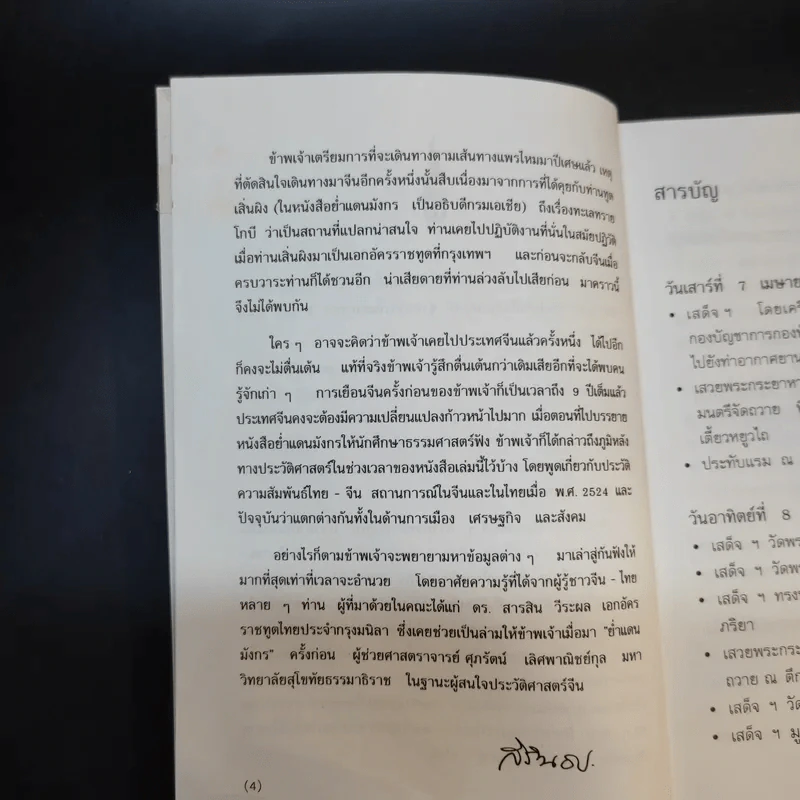 ข้าพเจ้าเตรียมการที่จะเดินทางตามเส้นทางแพรไหมมาปีเศษแล้ว เหตุ
ที่ตัดสินใจเดินทางมาจีนอีกครั้งหนึ่งนั้นสืบเนื่องมาจากการที่ได้คุยกับท่านทูต
เสิ่นผิง (ในหนังสือย่ำแดนมังกร เป็นอธิบดีกรมเอเชีย) ถึงเรื่องทะเลทราย
โกบี ว่าเป็นสถานที่แปลกน่าสนใจ ท่านเคยไปปฏิบัติงานที่นั่นในสมัยปฏิวัติ
เมื่อท่านเสิ่นผิงมาเป็นเอกอัครราชทูตที่กรุงเทพฯ และก่อนจะกลับจีนเมื่อ
ครบวาระท่านก็ได้ชวนอีก น่าเสียดายที่ท่านล่วงลับไปเสียก่อน มาคราวนี้
จึงไม่ได้พบกัน
ใคร ๆ อาจจะคิดว่าข้าพเจ้าเคยไปประเทศจีนแล้วครั้งหนึ่ง ได้ไปอีก
ก็คงจะไม่ตื่นเต้น แท้ที่จริงข้าพเจ้ารู้สึกตื่นเต้นกว่าเดิมเสียอีกที่จะได้พบคน
รู้จักเก่า ๆ การเยือนจีนครั้งก่อนของข้าพเจ้าก็เป็นเวลาถึง 9 ปีเต็มแล้ว
ประเทศจีนคงจะต้องมีความเปลี่ยนแปลงก้าวหน้าไปมาก เมื่อตอนที่ไปบรรยาย
หนังสือย่ำแดนมังกรให้นักศึกษาธรรมศาสตร์ฟัง ข้าพเจ้าก็ได้กล่าวถึงภูมิหลัง
ทางประวัติศาสตร์ในช่วงเวลาของหนังสือเล่มนี้ไว้บ้าง โดยพูดเกี่ยวกับประวัติ
ความสัมพันธ์ไทย - จีน สถานการณ์ในจีนและในไทยเมื่อ พ.ศ. 2524 และ
ปัจจุบันว่าแตกต่างกันทั้งในด้านการเมือง เศรษฐกิจ และสังคม
อย่างไรก็ตามข้าพเจ้าจะพยายามหาข้อมูลต่าง ๆ มาเล่าสู่กันฟังให้
มากที่สุดเท่าที่เวลาจะอำนวย โดยอาศัยความรู้ที่ได้จากผู้รู้ชาวจีน - ไทย
หลาย ๆ ท่าน ผู้ที่มาด้วยในคณะได้แก่ ดร. สารสิน วีระผล เอกอัคร
ราชทูตไทยประจำกรุงมนิลา ซึ่งเคยช่วยเป็นล่ามให้ข้าพเจ้าเมื่อมา "ย่ำแดน
มังกร" ครั้งก่อน ผู้ช่วยศาสตราจารย์ ศุภรัตน์ เลิศพาณิชย์กุล มหา
วิทยาลัยสุโขทัยธรรมาธิราช ในฐานะผู้สนใจประวัติศาสตร์จีน
สิรินธร.
(4)
สารบัญ
วันเสาร์ที่ 7 เมษาย
• เสด็จ ฯ โดยเครื
กองบัญชาการกองท
ไปยังท่าอากาศยาน
• เสวยพระกระยาหา
มนตรีจัดถวาย
เตี้ยวหยูวไถ
• ประทับแรม ณ
วันอาทิตย์ที่ 8
• เสด็จ ฯ วัดพร
• เสด็จ ฯ วัดพ
• เสด็จ ฯ ทรงท
ภริยา
• เสวยพระกระ
ถวาย ณ ตึก
• เสด็จ ฯ วัด
• เสด็จ ฯ มู